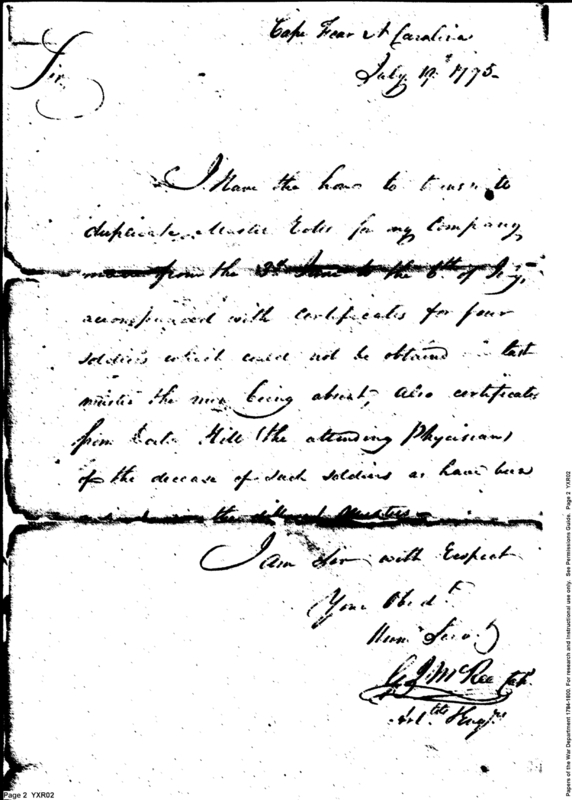 Cape Fear N Carolina
July 19th 1795
Sir,
I Have the hono to transmit
duplicate Muster Roles for my Company
from the 3d June to the 6th of
accompanied with certificates for four
soldiers which could not be obtained last
muster the men being absent, also certificates
from Hill (the attending Phycisian)
of the decease of such soldiers as have been
in the Musters
I am Sir with Respect
Your Obedt
Hum Servt
G J McRee Capt
Artlts Engrs
Page 2 YXR02
Papers of the War Department 1784-1800. For research and instructional use only. See Permissions Guide. Page 2 YXR02